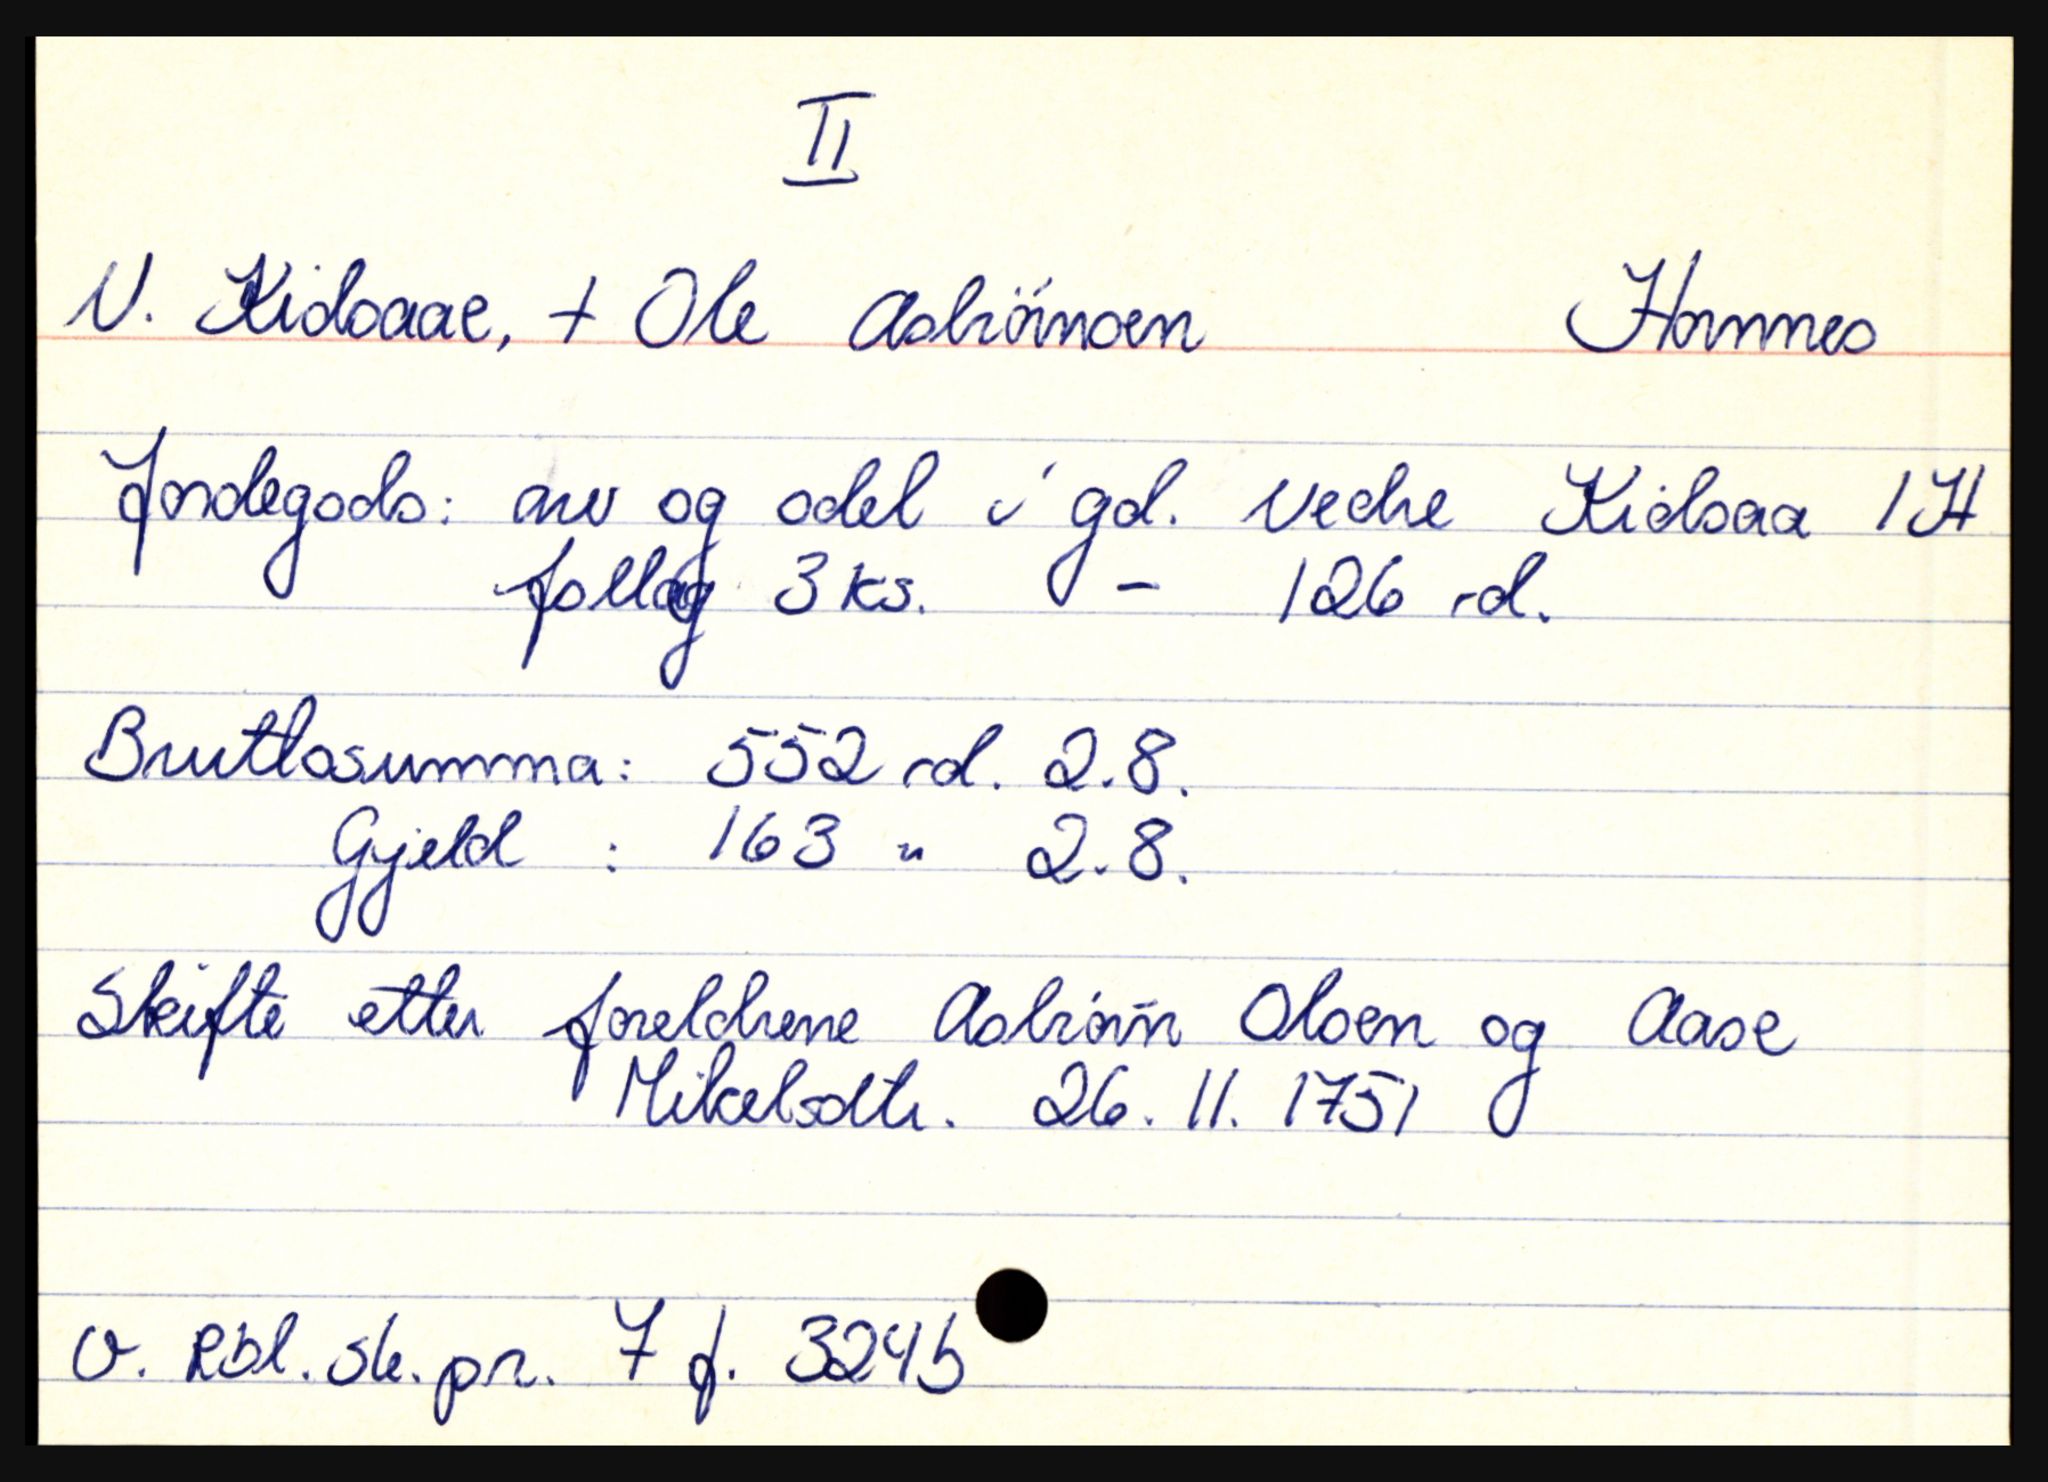 II
N. Kidsaae, + Ole Asbiörnsen Hornnes
Jordegods: arv og odel i gd. Nedre Kidsaa 1 H
follag 3 ks. - 126 rd.
Bruttosumma: 552 rd. 2.8.
Gjeld : 163 " 2.8.
Skifte etter foreldrene Asbiörn Olsen og Aase
Mikelsdtr. 26. 11. 1751
v. Rbl. sk. pr. 7 f. 324b